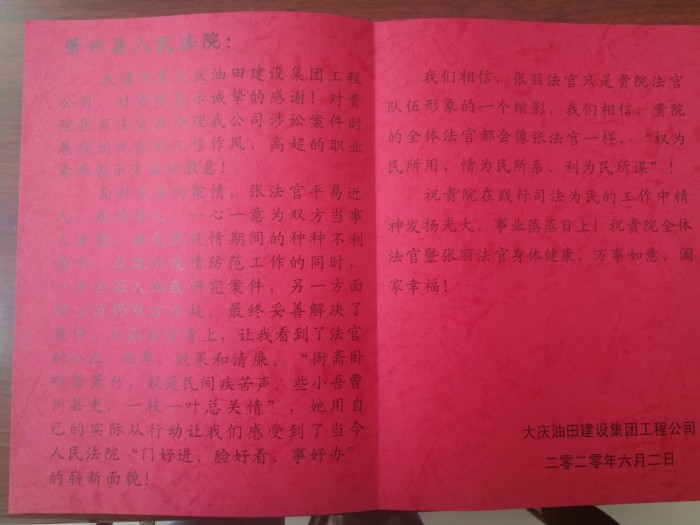 肇州县人民法院：
大庆油田建设集团工程
公司，对 表示诚挚的感谢！对贵
院张丽法官在办理我公司涉讼案件时
展现的优良的工作作风、高超的职业
素养表示 的敬意！
面对 的案情，张法官平易近
人、 一心一意为双方当事
人 疫情期间的种种不利
疫情防范工作的同时，
研究案件，另一方面
双方 ，最终妥善解决了
身上，让我看到了法官
的公正、效率、效果和清廉。“衙斋卧
听萧萧竹，疑是民间疾苦声。些小吾曹
州县吏，一枝一叶总关情”，她用自
己的实际从行动让我们感受到了当今
人民法院“门好进、脸好看、事好办”
的崭新面貌！
我们相信，张丽法官只是贵院法官
队伍形象的一个缩影，我们相信，贵院
的全体法官都会像张法官一样，“权为
民所用、情为民所系、利为民所谋”！
祝贵院在践行司法为民的工作中精
神发扬光大、事业蒸蒸日上！祝贵院全体
法官暨张丽法官身体健康，万事如意，阖
家幸福！
大庆油田建设集团工程公司
二零二零年六月二日